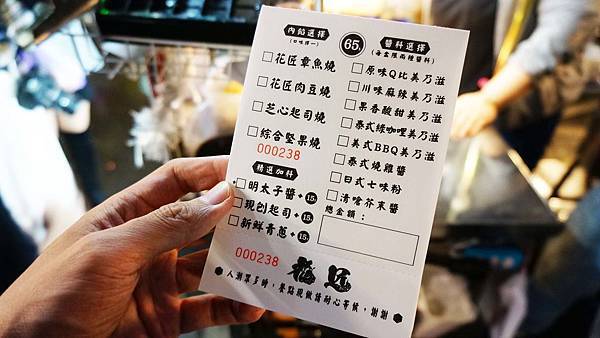 內餡選擇
(口味擇一)
花匠章魚燒
花匠肉豆燒
芝心起司燒
綜合堅果燒
000238
精選加料
明太子醬+15.
現刨起司+15.
新鮮青蔥+15.
65.
醬料選擇
(每盒限兩種醬料)
原味Q比美乃滋
川味麻辣美乃滋
果香酸甜美乃滋
泰式綠咖哩美乃滋
美式BBQ美乃滋
泰式燒雞醬
日式七味粉
清嗆芥末醬
總金額：
000238
人潮眾多時，餐點現做請耐心等候，謝謝